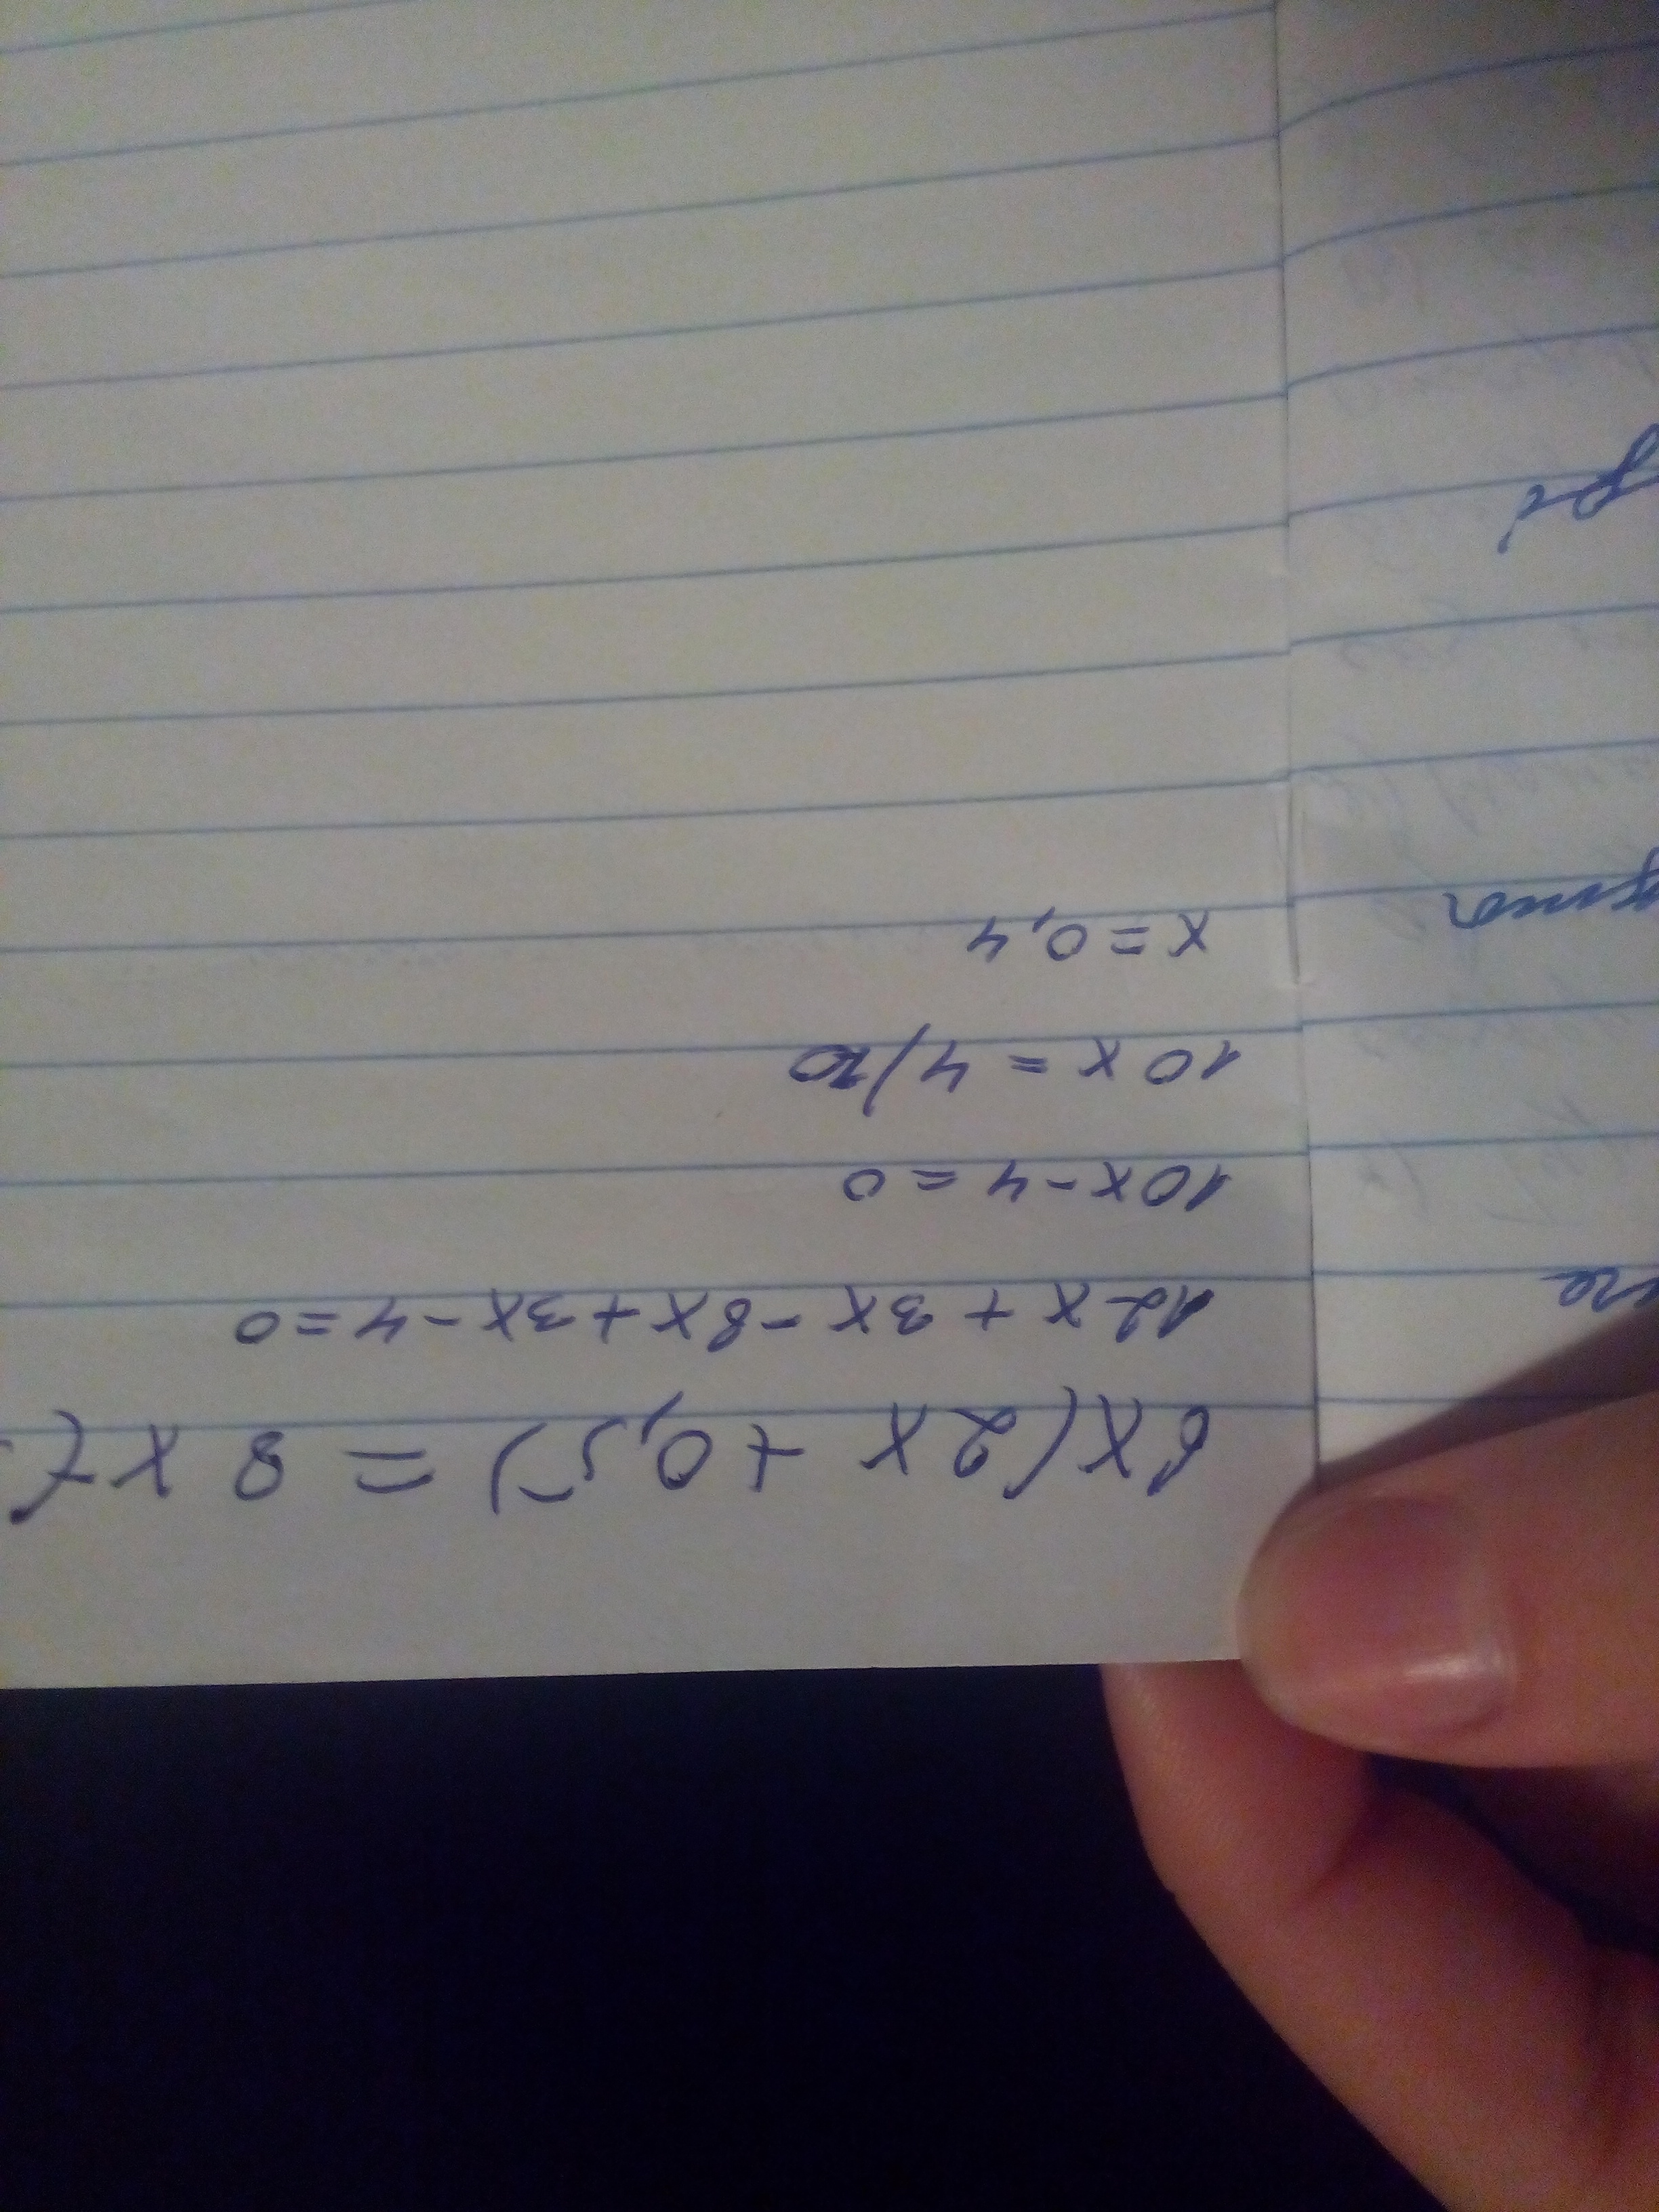 6x(2x + 0,5) = 8x
12x + 3x - 8x + 3x - 4 = 0
10x - 4 = 0
10x = 4/10
x = 0,4